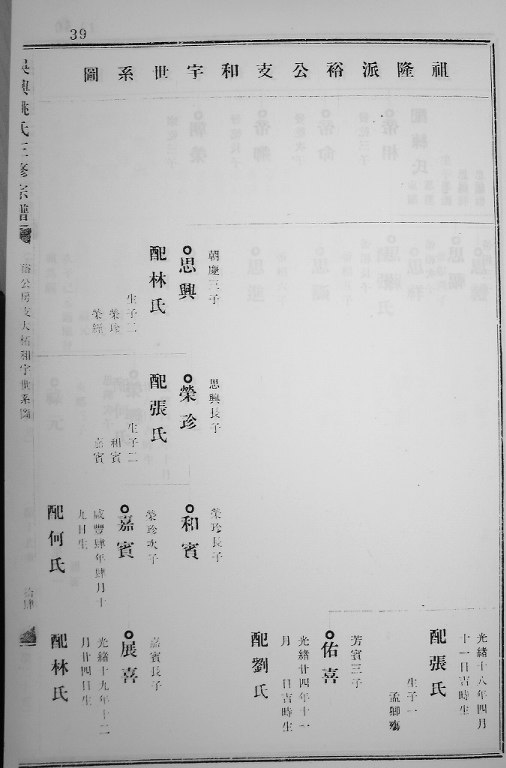 39
祖隆派裕公支和宇世系圖
吳興姚氏三修宗譜
裕公房支大栢和宇世系圖
拾肆
朝慶三子
思興
配林氏
生子二
榮珍
思興長子
榮珍
配張氏
生子二
和賓
嘉賓
榮珍長子
和賓
榮珍次子
嘉賓
咸豐肆年肆月十
九日生
配何氏
光緒十八年四月
十一日吉時生
配張氏
生子一
孟卿殤
芳賓三子
佑喜
光緒廿四年十一
月 日吉時生
配劉氏
嘉賓長子
展喜
光緒十九年十二
月廿四日生
配林氏